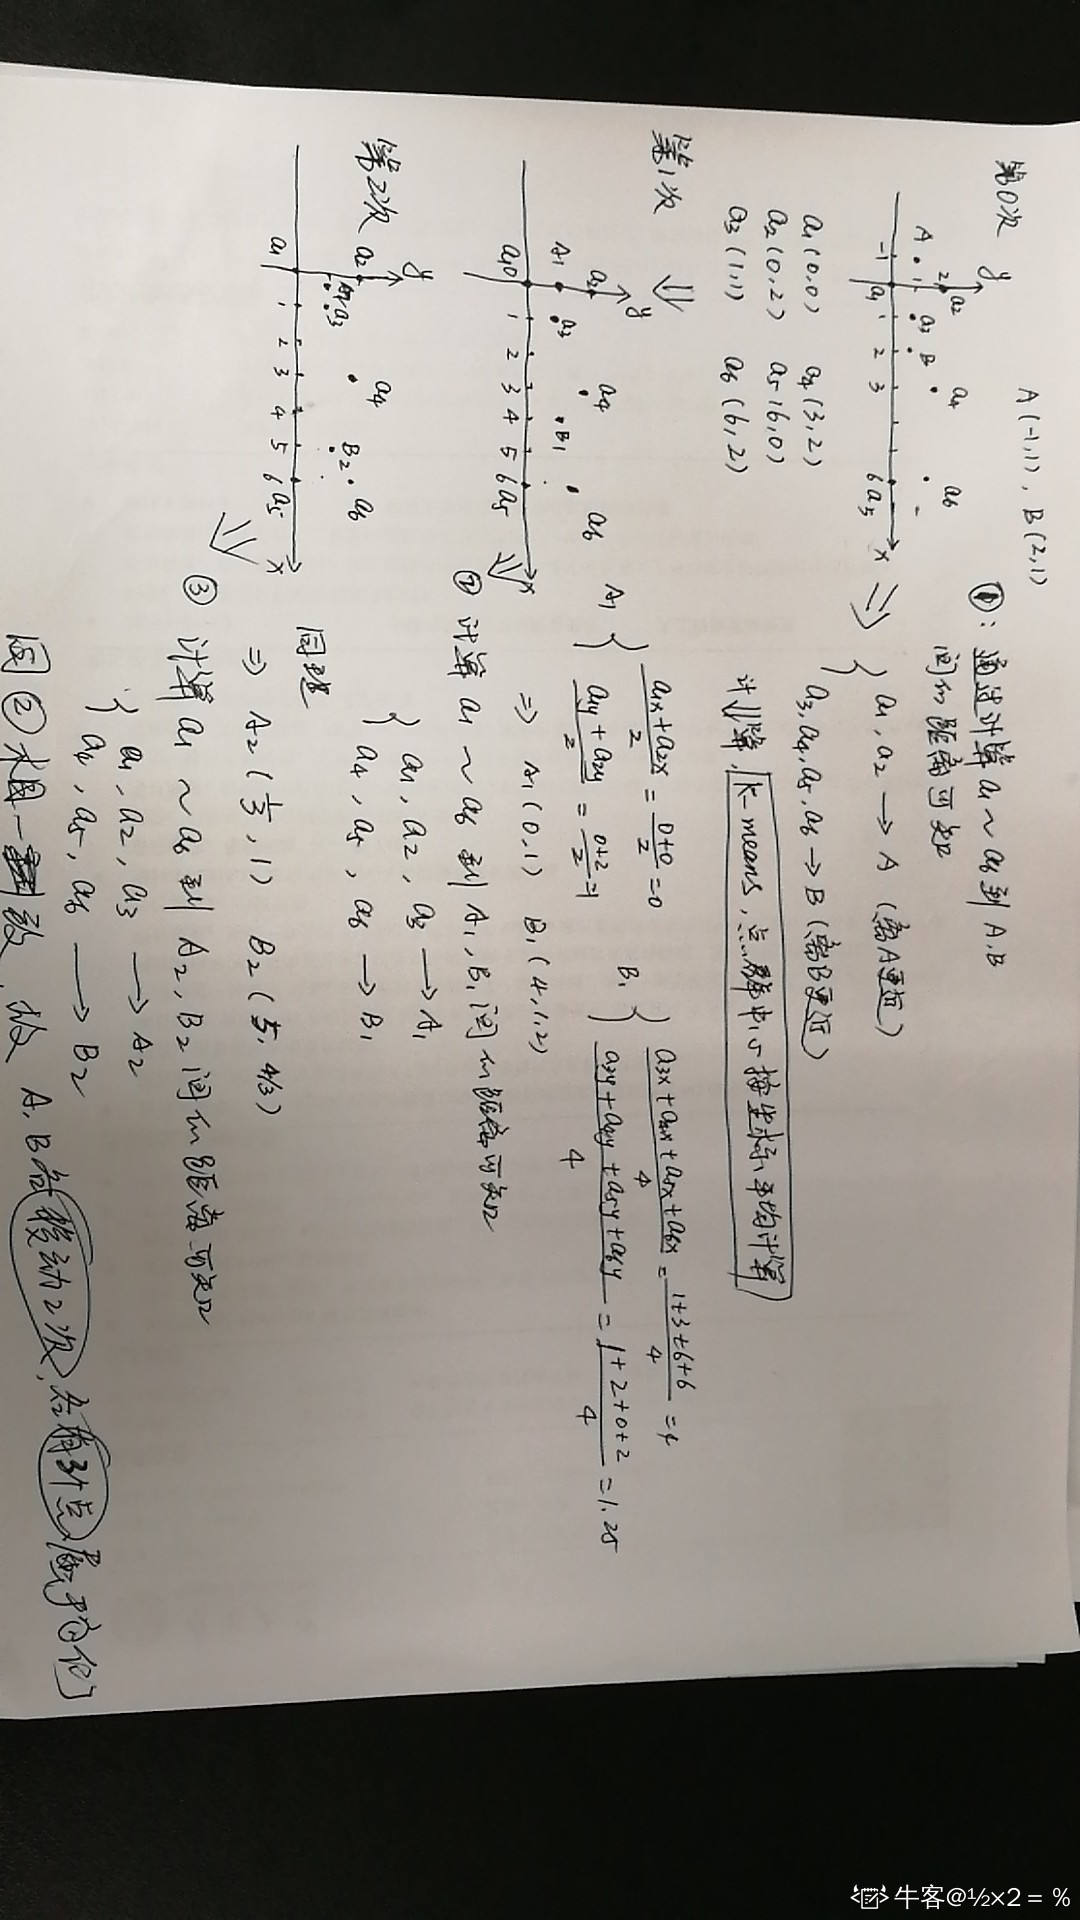 第0次
A(-1,1), B(2,1)
y
2 a2
a4
a6
A
1
a3
B
-1 a1 1 2 3 6 a5 x
a1(0,0) a4(3,2)
a2(0,2) a5(6,0)
a3(1,1) a6(6,2)
①: 通过计算 a1~a6 到 A,B
间的距离可知
a1, a2 → A (离A更近)
a3, a4, a5, a6 → B (离B更近)
计算, k-means, 点群中心按坐标平均计算
第1次
y
a2
a4
a6
A1
a3
B1
a1 0 1 2 3 4 5 6 a5 x
A1 { (a1x+a2x)/2 = (0+0)/2 = 0
(a1y+a2y)/2 = (0+2)/2 = 1
B1 { (a3x+a4x+a5x+a6x)/4 = (1+3+6+6)/4 = 4
(a3y+a4y+a5y+a6y)/4 = (1+2+0+2)/4 = 1.25
⇒ A1(0,1) B1(4,1.2)
② 计算 a1 ~ a6 到 A1, B1 间的距离可知
a1, a2, a3 → A1
a4, a5, a6 → B1
第2次
y
a2
a4
B2
a6
A2 a3
a1 1 2 3 4 5 6 a5 x
同理
⇒ A2(1/3, 1) B2(5, 4/3)
③ 计算 a1 ~ a6 到 A2, B2 间的距离可知
a1, a2, a3 → A2
a4, a5, a6 → B2
同②相一致, 故 A,B各移动2次, 各有3个点属于它们
牛客@½×2=%